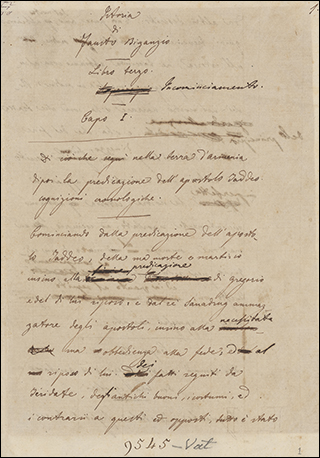 Istoria
di
Fausto Bizanzio
Libro terzo.
Incominciamento.
Capo I.
nella terra d'armenia
dopo la predicazione dell'apostolo Taddeo
cognizioni cronologiche.
Cominciando dalla predicazione dell'aposto-
lo Taddeo, della sua morte e martirio
insino alla predicazione di gregorio
e dal di lui riposo; e dal re Sanadrug ammaz-
gatore degli apostoli, insino alla
sua obbedienza alla fede, ed al
riposo di lui, dei fatti seguiti da
Teridate, degli antichi buoni costumi, ed
i contrarii a questi ed opposti, tutto è stato
9545-Vat
1